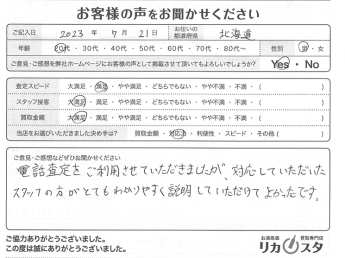 お客様の声をお聞かせください
ご記入日 2023年7月21日 お住いの都道府県 北海道
年齢 20代・30代・40代・50代・60代・70代・80代〜 性別 男・女
ご意見・ご感想を弊社ホームページにお客様の声として掲載させて頂いてもよろしいでしょうか? Yes・No
査定スピード 大満足・満足・やや満足・どちらでもない・やや不満・不満・( )
スタッフ接客 大満足・満足・やや満足・どちらでもない・やや不満・不満・( )
買取金額 大満足・満足・やや満足・どちらでもない・やや不満・不満・( )
当店をお選びいただきました決め手は? 買取金額・対応力・利便性・スピード・その他( )
ご意見・ご感想などぜひお聞かせください
電話査定をご利用させていただきましたが、対応していただいた
スタッフの方がとてもわかりやすく説明していただけてよかったです。
ご協力ありがとうございました。
この度は誠にありがとうございました。
お酒高価 買取専門店
リカスタ